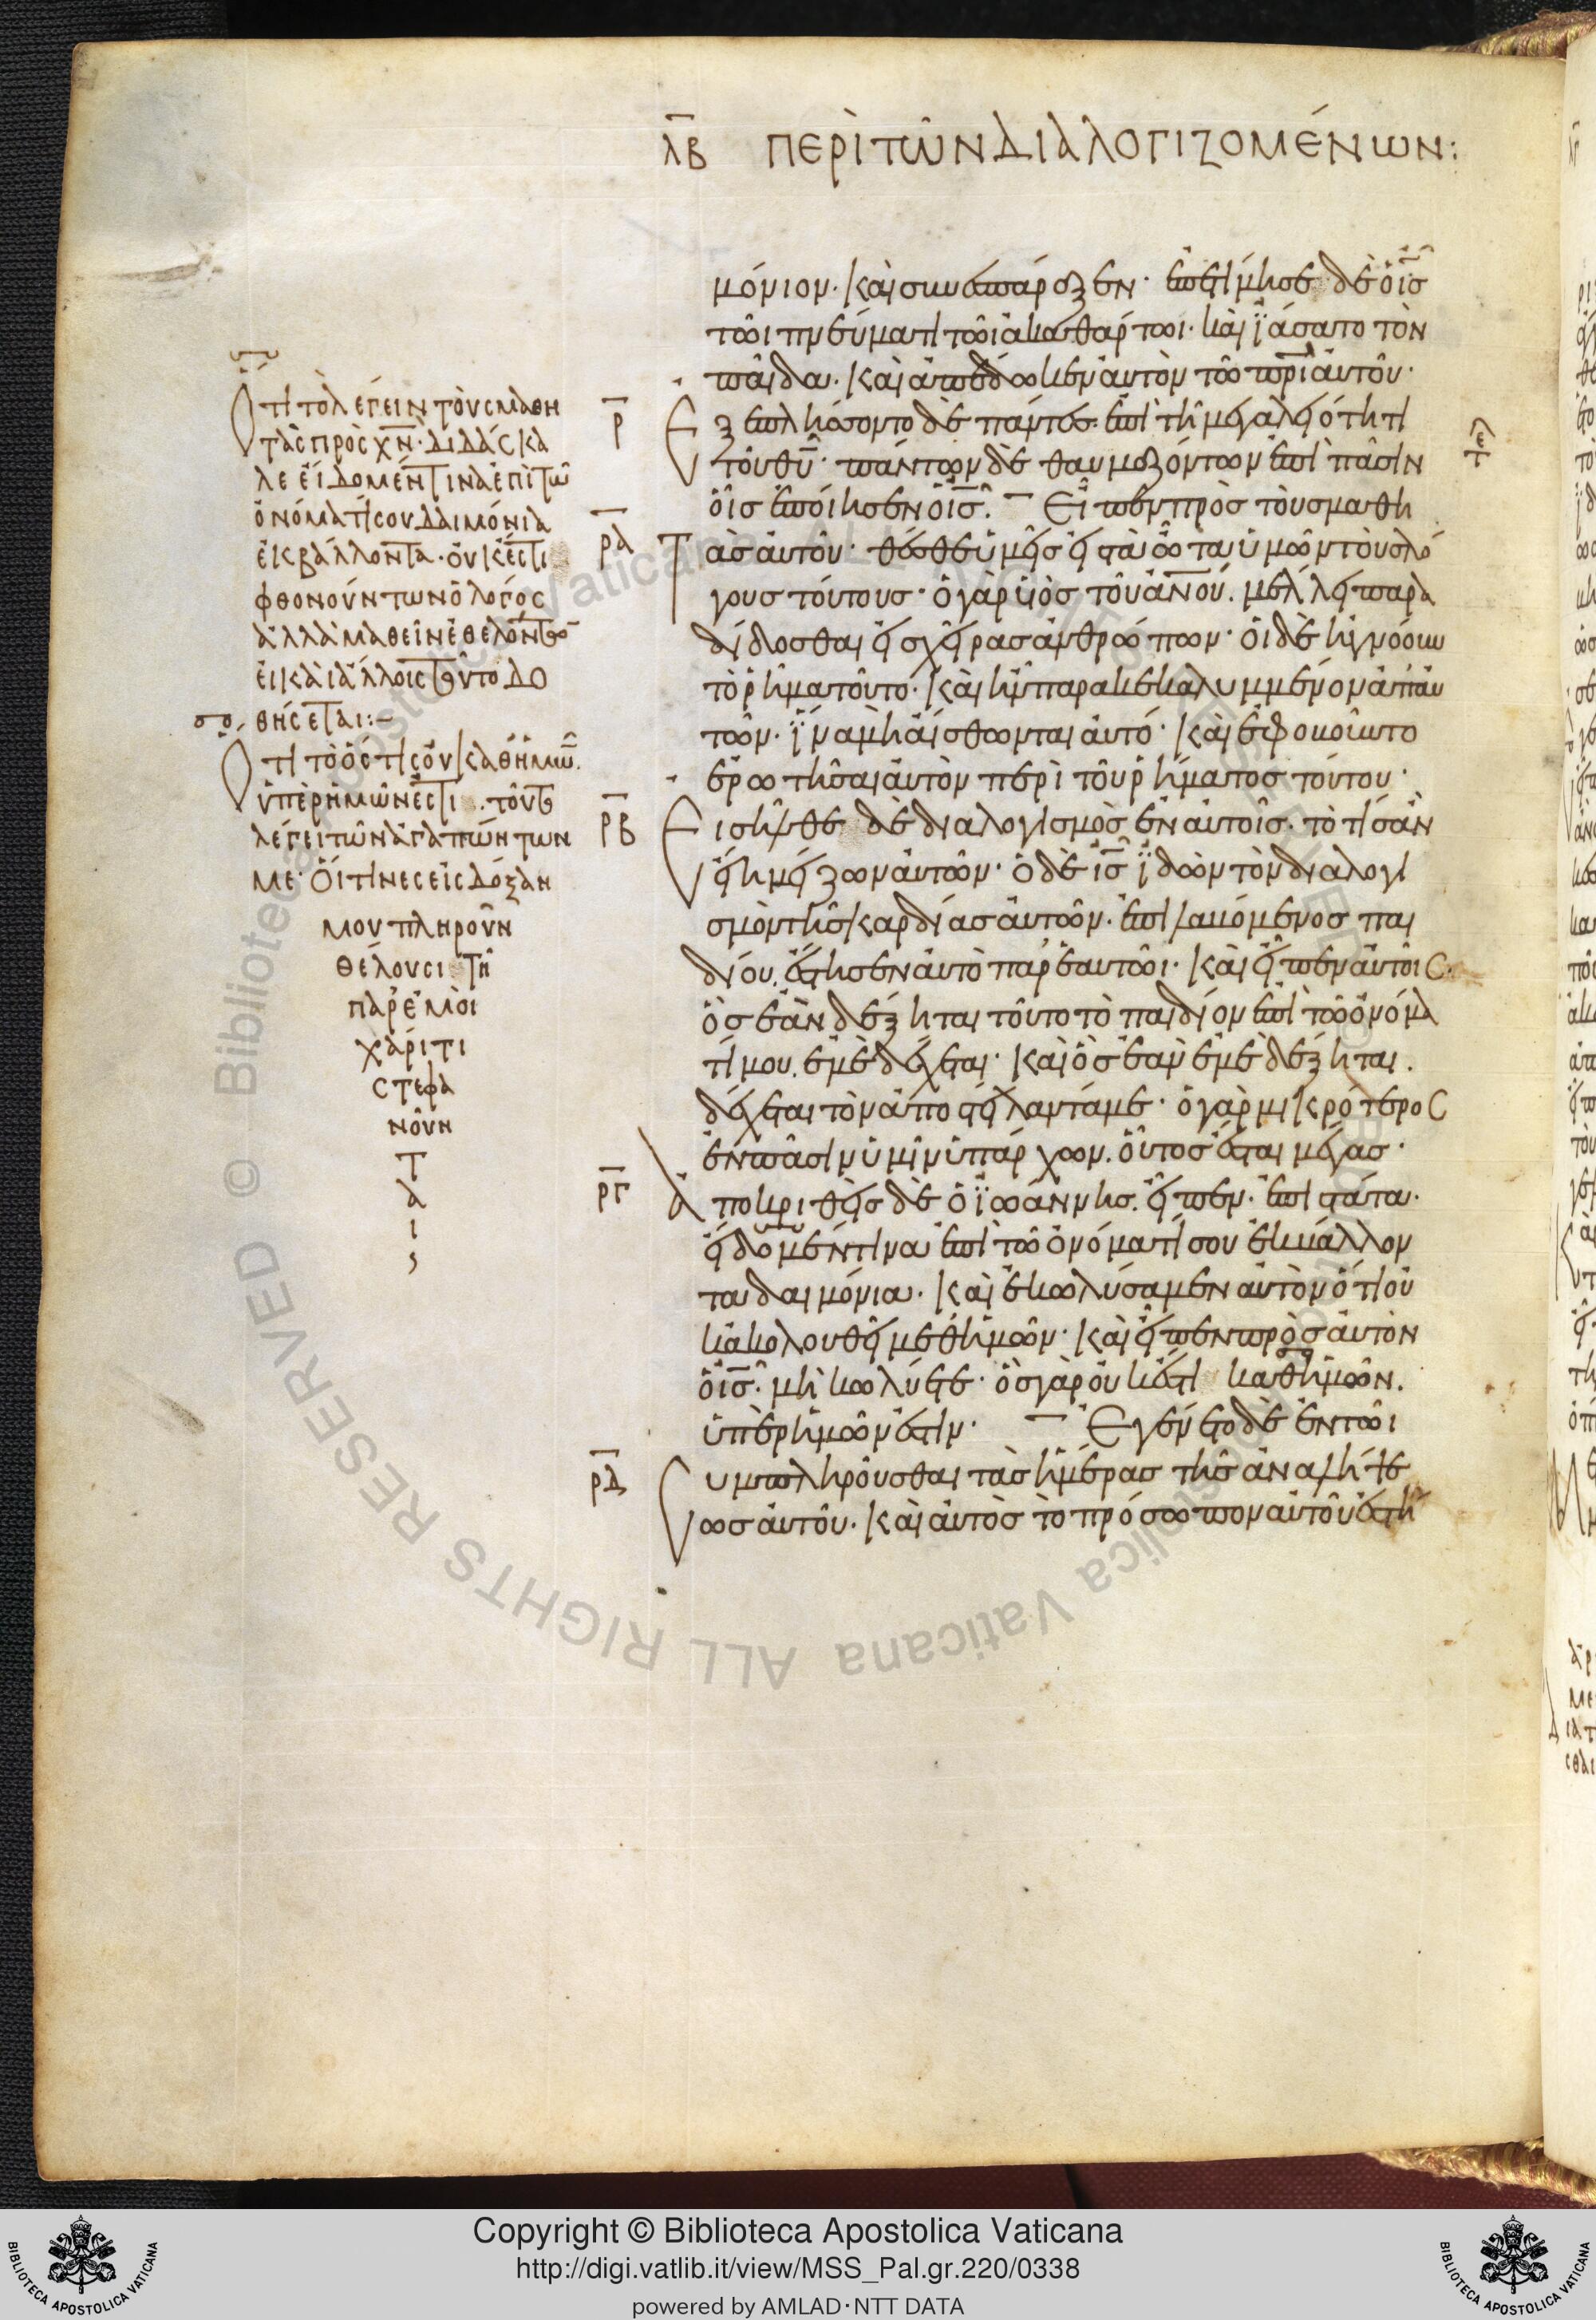 λβ ΠΕΡῚ ΤΩ͂Ν ΔΙΑΛΟΓΙΖΟΜΈΝΩΝ:
μόνιον· καὶ συνεσπάραξεν· ἐπετίμησε δὲ ὁ ις
τῶι πνεύματι τῶι ἀκαθάρτωι· καὶ ϊάσατο τὸν
παῖδα· καὶ ἀπέδωκεν αὐτὸν τῶ πρι αὐτοῦ·
ρ Ἐξεπλήσσοντο δὲ πάντες ἐπὶ τῆ μεγαλειότητι
τοῦ θυ· πάντων δὲ θαυμαζόντων ἐπὶ πᾶσιν
οἷς ἐποίησεν ὁ ις· Εἶπεν πρὸς τοὺς μαθη
ρα Τὰς αὐτοῦ· θέσθε ὑμεῖς εἰς τὰ ὦτα ὑμῶν τοὺς λό
γους τούτους· ὁ γὰρ υἱὸς τοῦ ανου. μέλλει παρα
δίδοσθαι εἰς χεῖρας ἀνθρώπων· οἱ δὲ ἠγνόουν
τὸ ῥῆμα τοῦτο· καὶ ἦν παρακεκαλυμμένον ἀπ' αυ
τῶν· ϊνα μὴ αἴσθωνται αὐτό· καὶ ἐφοβοῦντο
ἐρωτῆσαι αὐτὸν περὶ τοῦ ῥήματος τούτου·
ρβ Εἰσῆλθε δὲ διαλογισμὸς ἐν αὐτοῖς· τὸ τίς ἂν
εἴη μείζων αὐτῶν· ὁ δὲ ις ϊδὼν τὸν διαλογι
σμὸν τῆς καρδίας αὐτῶν· ἐπιλαβόμενος παι
δίου. ἔστησεν αὐτὸ παρ' ἑαυτῶι· καὶ εἶπεν αὐτοῖς·
ὃς ἐὰν δέξηται τοῦτο τὸ παιδίον ἐπὶ τῶ ὀνόμα
τί μου. ἐμὲ δέχεται· καὶ ὃς ἐὰν ἐμὲ δέξηται.
δέχεται τὸν ἀποστείλαντά με· ὁ γὰρ μικρότερος
ἐν πᾶσιν ὑμῖν ὑπάρχων. οὗτος ἔσται μέγας·
ργ Ἀποκριθεὶς δὲ ὁ ϊωάννης. εἶπεν· ἐπιστάτα·
εἴδομέν τινα ἐπὶ τῶ ὀνόματί σου ἐκβάλλον
τα δαιμόνια· καὶ ἐκωλύσαμεν αὐτὸν ὅτι οὐ
κ ἀκολουθεῖ μεθ' ἡμῶν· καὶ εἶπεν πρὸς αὐτὸν
ὁ ις· μὴ κωλύετε· ὃς γὰρ οὐκ ἔστι καθ' ἡμῶν.
ὑπὲρ ἡμῶν ἐστιν· Ἐγένετο δὲ ἐν τῶι
ρδ Συμπληροῦσθαι τὰς ἡμέρας τῆς ἀναλήψε
ως αὐτοῦ· καὶ αὐτὸς τὸ πρόσωπον αὐτοῦ ἐστή
Ὅτι τὸ λέγειν τοὺς μαθη
τὰς πρὸς χν· διδάσκα
λε εἴδομέν τινα ἐπὶ τῶ
ὀνόματί σου δαιμόνια
ἐκβάλλοντα· οὐκ ἔστι
φθονούντων ὁ λόγος
ἀλλὰ μαθεῖν ἐθελόντων
εἰ καὶ ἄλλοις τοῦτο δο
θήσεται:-
Ὅτι τὸ ὅστις οὐ καθ' ἡμῶν
ὑπὲρ ἡμῶν ἐστι. τοῦτο
λέγει τῶν ἀγαπώντων
με· οἵτινες εἰς δόξαν
μου πληροῦν
θέλουσι τῆ
παρ' ἐμοὶ
χάριτι
στεφα
νοῦν
τ
α
ι
:
Copyright © Biblioteca Apostolica Vaticana
http://digi.vatlib.it/view/MSS_Pal.gr.220/0338
powered by AMLAD·NTT DATA
BIBLIOTECA APOSTOLICA VATICANA
BIBLIOTECA APOSTOLICA VATICANA